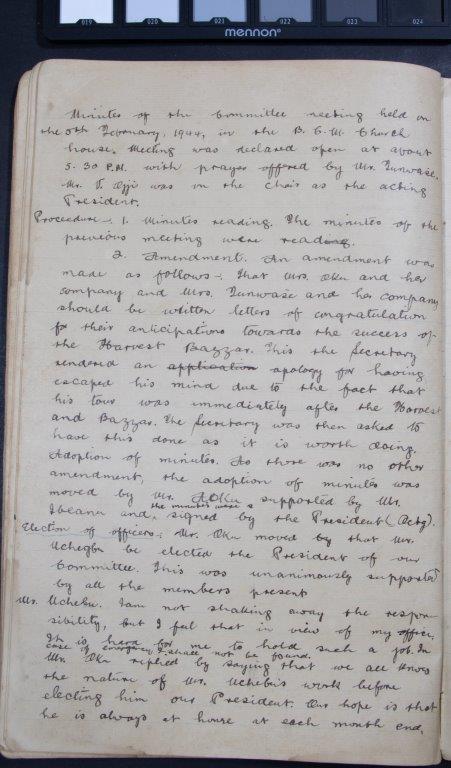 019 020 021 022 023 024
mennon
Minutes of the Committee meeting held on
the 5th February, 1944, in the B. C. M. Church
house. Meeting was declared open at about
5.30 P.M. with prayer offered by Mr. Funwase.
Mr. Ojji was in the chair as the acting
President.
Proceedure - 1. Minutes reading. The minutes of the
previous meeting were reading.
2. Amendment. An amendment was
made as follows: That Mrs. Oku and her
company and Mrs. Funwase and her company
should be written letters of congratulation
for their anticipations towards the success of
the Harvest Bazzar. This the Secretary
rendered an application apology for having
escaped his mind due to the fact that
his tour was immediately after the Harvest
and Bazzar. The Secretary was then asked to
have this done as it is worth doing.
Adoption of minutes. As there was no other
amendment, the adoption of minutes was
moved by Mr. Oku supported by Mr.
Ibeanu and, the minutes were signed by the President (Actg).
Election of officers: Mr. Oku moved by that Mr.
Uchegbu be elected the President of our
Committee. This was unanimously supported
by all the members present
Mr. Uchebu. I am not shaking away the respon-
sibility, but I feel that in view of my office,
It is hard for me to hold such a job. In
case of emergency I shall not be found.
Mr. Oku replied by saying that we all knew
the nature of Mr. Uchebu's work before
electing him our President. Our hope is that
he is always at house at each month end.